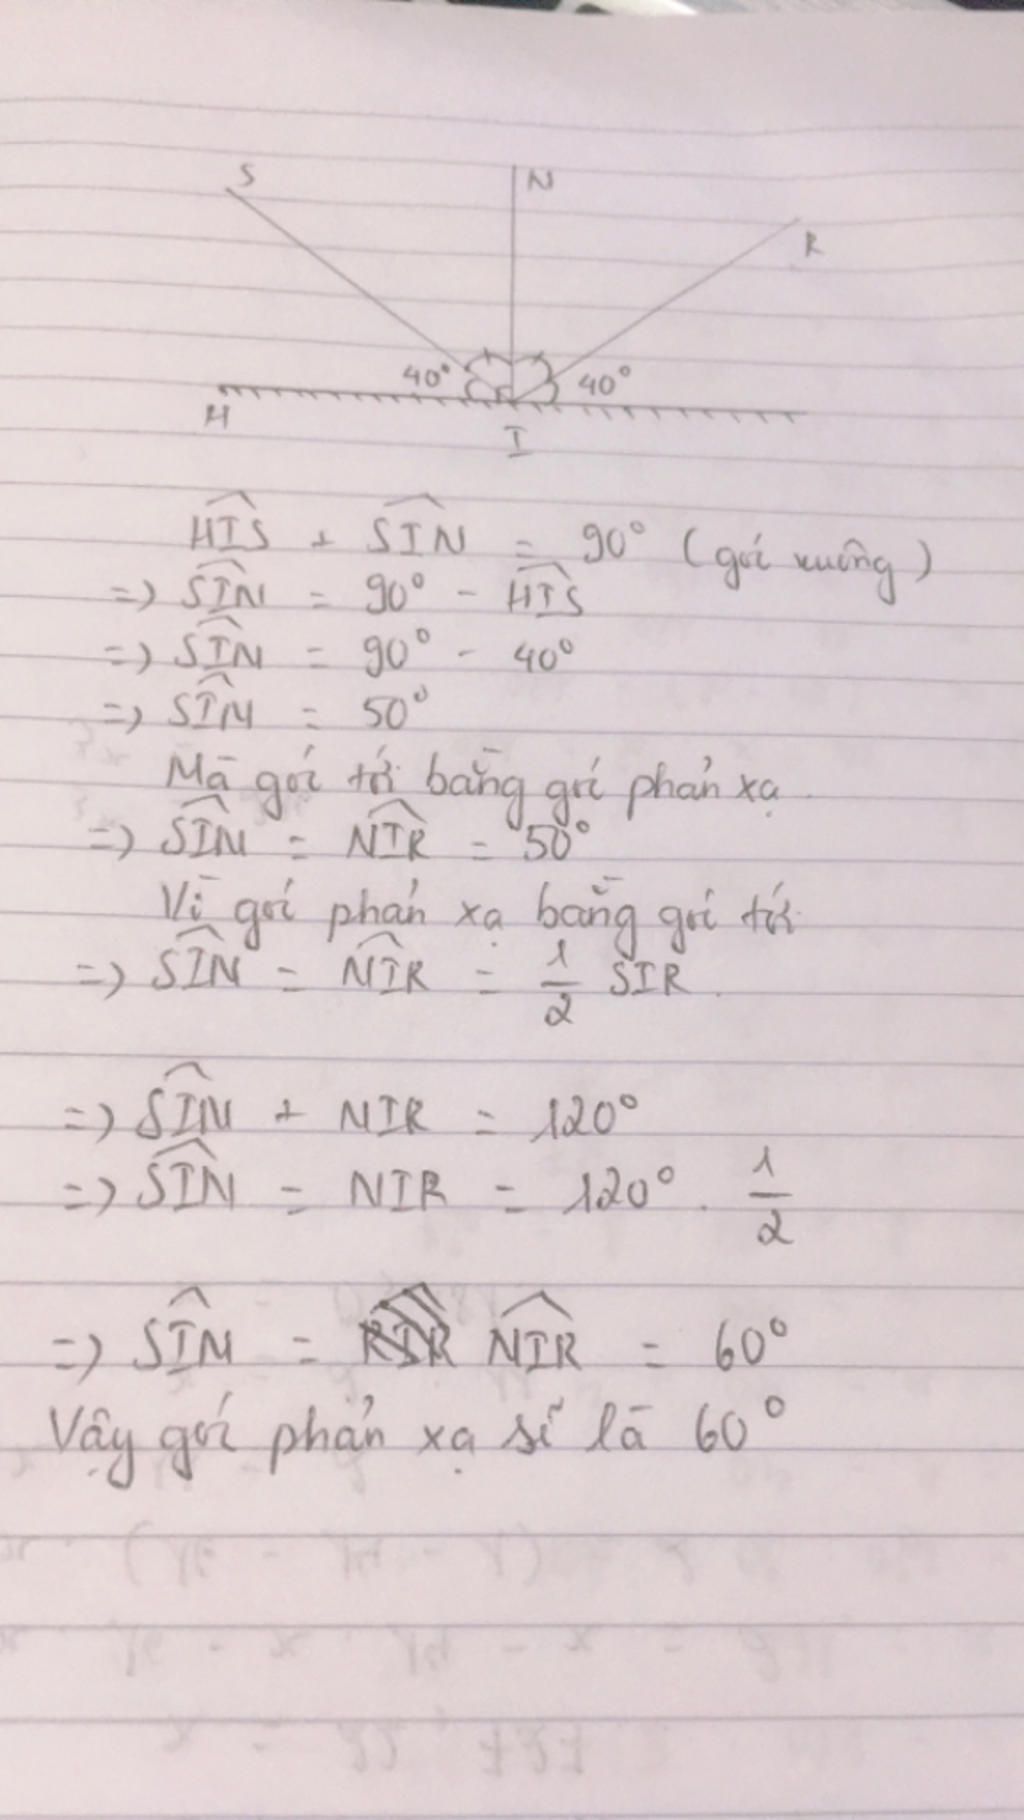 S N R
40° 40°
H I
HIS + SIN = 90° (gói xuông)
=> SIN = 90° - HIS
=> SIN = 90° - 40°
=> SIN = 50°
Mà gói tới bằng gói phản xạ.
=> SIN = NIR = 50°
Vì gói phản xạ bằng gói tới
=> SIN = NIR = 1/2 SIR.
=> SIN + NIR = 120°
=> SIN = NIR = 120° . 1/2
=> SIN = NIR = 60°
Vậy gói phản xạ sẽ là 60°